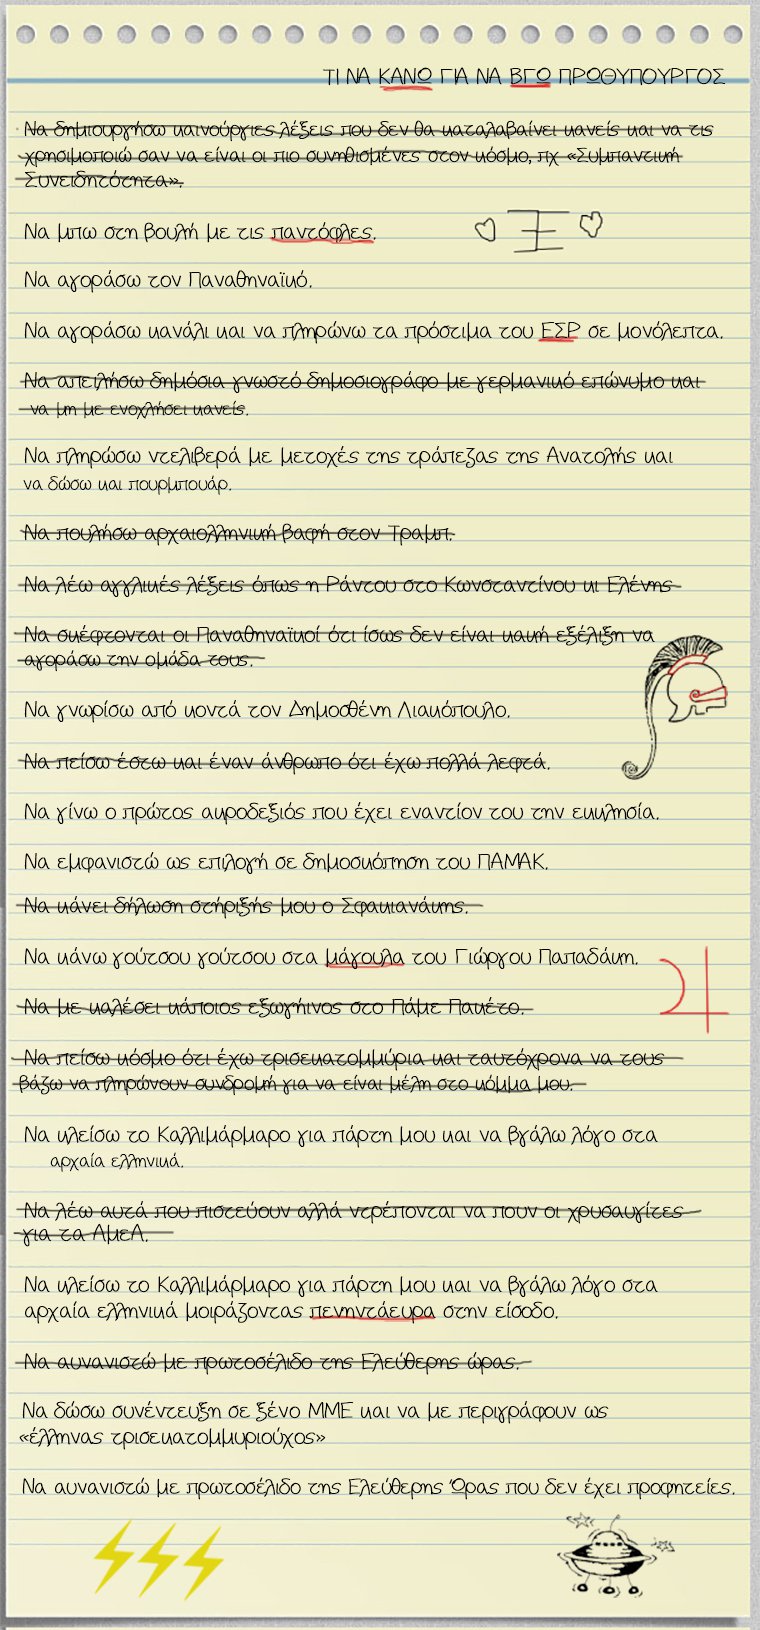 ΤΙ ΝΑ ΚΑΝΩ ΓΙΑ ΝΑ ΒΓΩ ΠΡΩΘΥΠΟΥΡΓΟΣ
Να δημιουργήσω καινούργιες λέξεις που δεν θα καταλαβαίνει κανείς και να τις
χρησιμοποιώ σαν να είναι οι πιο συνηθισμένες στον κόσμο, πχ «Συμπαντική
Συνειδητότητα».
Να μπω στη βουλή με τις παντόφλες.
Να αγοράσω τον Παναθηναϊκό.
Να αγοράσω κανάλι και να πληρώνω τα πρόστιμα του ΕΣΡ σε μονόλεπτα.
Να απειλήσω δημόσια γνωστό δημοσιογράφο με γερμανικό επώνυμο και
να μη με ενοχλήσει κανείς.
Να πληρώσω ντελιβερά με μετοχές της τράπεζας της Ανατολής και
να δώσω και πουρμπουάρ.
Να πουλήσω αρχαιολληνική βαφή στον Τραμπ.
Να λέω αγγλικές λέξεις όπως η Ράντου στο Κωνσταντίνου κι Ελένης
Να σκέφτονται οι Παναθηναϊκοί ότι ίσως δεν είναι κακή εξέλιξη να
αγοράσω την ομάδα τους.
Να γνωρίσω από κοντά τον Δημοσθένη Λιακόπουλο.
Να πείσω έστω και έναν άνθρωπο ότι έχω πολλά λεφτά.
Να γίνω ο πρώτος ακροδεξιός που έχει εναντίον του την εκκλησία.
Να εμφανιστώ ως επιλογή σε δημοσκόπηση του ΠΑΜΑΚ.
Να κάνει δήλωση στήριξής μου ο Σφακιανάκης.
Να κάνω γούτσου γούτσου στα μάγουλα του Γιώργου Παπαδάκη.
Να με καλέσει κάποιος εξωγήινος στο Πάμε Πακέτο.
Να πείσω κόσμο ότι έχω τρισεκατομμύρια και ταυτόχρονα να τους
βάζω να πληρώνουν συνδρομή για να είναι μέλη στο κόμμα μου.
Να κλείσω το Καλλιμάρμαρο για πάρτη μου και να βγάλω λόγο στα
αρχαία ελληνικά.
Να λέω αυτά που πιστεύουν αλλά ντρέπονται να πουν οι χρυσαυγίτες
για τα ΑμεΑ.
Να κλείσω το Καλλιμάρμαρο για πάρτη μου και να βγάλω λόγο στα
αρχαία ελληνικά μοιράζοντας πενηντάευρα στην είσοδο.
Να αυνανιστώ με πρωτοσέλιδο της Ελεύθερης ώρας.
Να δώσω συνέντευξη σε ξένο ΜΜΕ και να με περιγράφουν ως
«έλληνας τρισεκατομμυριούχος»
Να αυνανιστώ με πρωτοσέλιδο της Ελεύθερης Ώρας που δεν έχει προφητείες.